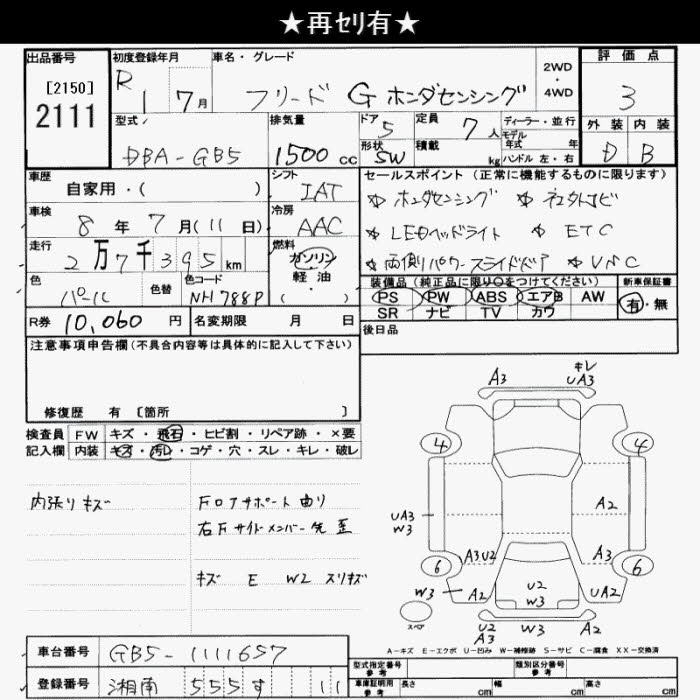 ★再セリ有★
出品番号
[2150]
2111
初度登録年月
R 1 7月
車名・グレード
フリード G ホンダセンシング
2WD
・
4WD
評価点
3
型式
DBA-GB5
排気量
1500 cc
ドア 5
形状 SW
定員 7人
積載 kg
ディーラー・並行
モデル
年式 年
ハンドル 左・右
外装 内装
D B
車歴
自家用・( )
シフト
IAT
セールスポイント (正常に機能するものに限ります)
車検
8年7月(11日)
冷房
AAC
ホンダセンシング
LEDヘッドライト
ETC
両側パワースライドドア
走行
2万7千395km
燃料
ガソリン
軽油
( )
色
パール
色替
色コード
NH788P
装備品(純正品に限り○をつけてください)
新車保証書
PS PW ABS エアB AW
有・無
SR ナビ TV カワ
R券 10,060円
名変期限 月 日
後日品
注意事項申告欄(不具合内容等は具体的に記入して下さい)
修復歴 有 [箇所 ]
検査員
記入欄
FW キズ・飛石・ヒビ割・リペア跡・×要
内装 キズ・汚レ・コゲ・穴・スレ・キレ・破レ
内張りキズ
Fロアサポート曲り
右Fサイドメンバー先歪
キズ E W2 スリキズ
A3
キレ
UA3
4
4
UA3
W3
A2
A3U2
A3
6
6
W3
A2
U2
W3
UA2
スペア
U2
A3
W3
A2
A-キズ E-エクボ U-凹み W-補修跡 S-サビ C-腐食 XX-交換済
車台番号
GB5-1111657
登録番号
湘南 555 す 11
型式指定番号
参考
類別区分番号
参考
車庫証明用
参考
長さ cm
幅 cm
高さ cm